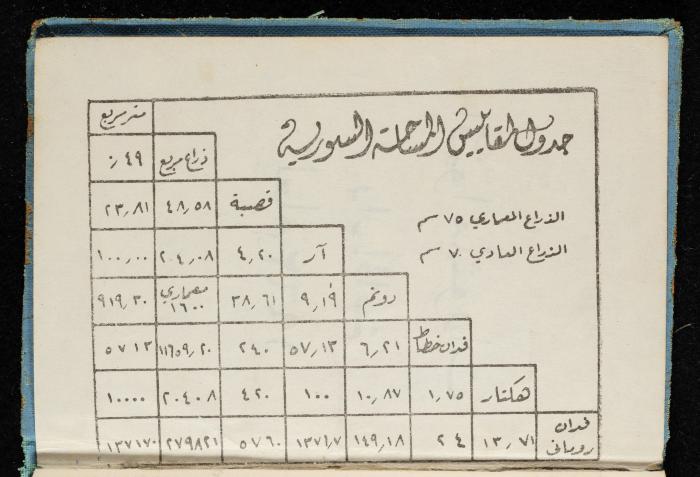 جدول لمقاييس المساحة السورية
الذراع المعماري ٧٥ سم
الذراع العادي ٧٠ سم
متر مربع
٤٩ر٠ ذراع مربع
٢٣ر٨١ ٤٨ر٥٨ قصبة
١٠٠ر٠٠ ٢٠٤ر٠٨ ٤ر٢٠ آر
٩١٩ر٣٠ معماري ١٦٠٠ ٣٨ر٦١ ٩ر١٩ دونم
٥٧١٣ ١١٦٥٩ر٢٠ ٢٤٠ ٥٧ر١٣ ٦ر٢١ فدان خطاط
١٠٠٠٠ ٢٠٤٠٨ ٤٢٠ ١٠٠ ١٠ر٨٧ ١ر٧٥ هكتار
١٣٧١٧٠ ٢٧٩٨٢١ ٥٧٦٠ ١٣٧١ر٧ ١٤٩ر١٨ ٢٤ ١٣ر٧١ فدان روماني